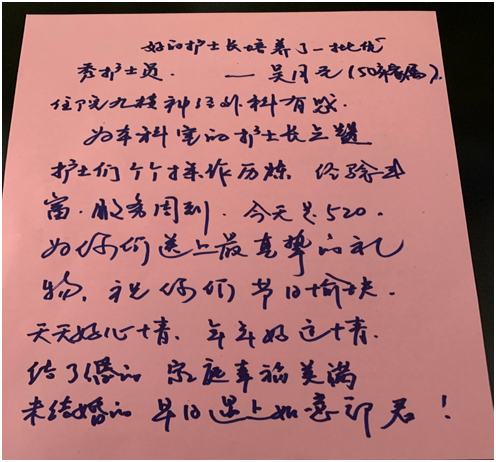 好的护士长培养了一批优
秀护士员. — 吴同元(50床家属).
住院九楼神经外科有感.
为本科室的护士长点赞
护士们个个操作历炼 经验丰
富.服务周到.今天是520.
为你们送上最真挚的礼
物.祝你们节日愉快.
天天好心情.年年好运情.
结了婚的 家庭幸福美满
未结婚的 早日遇上如意郎君！